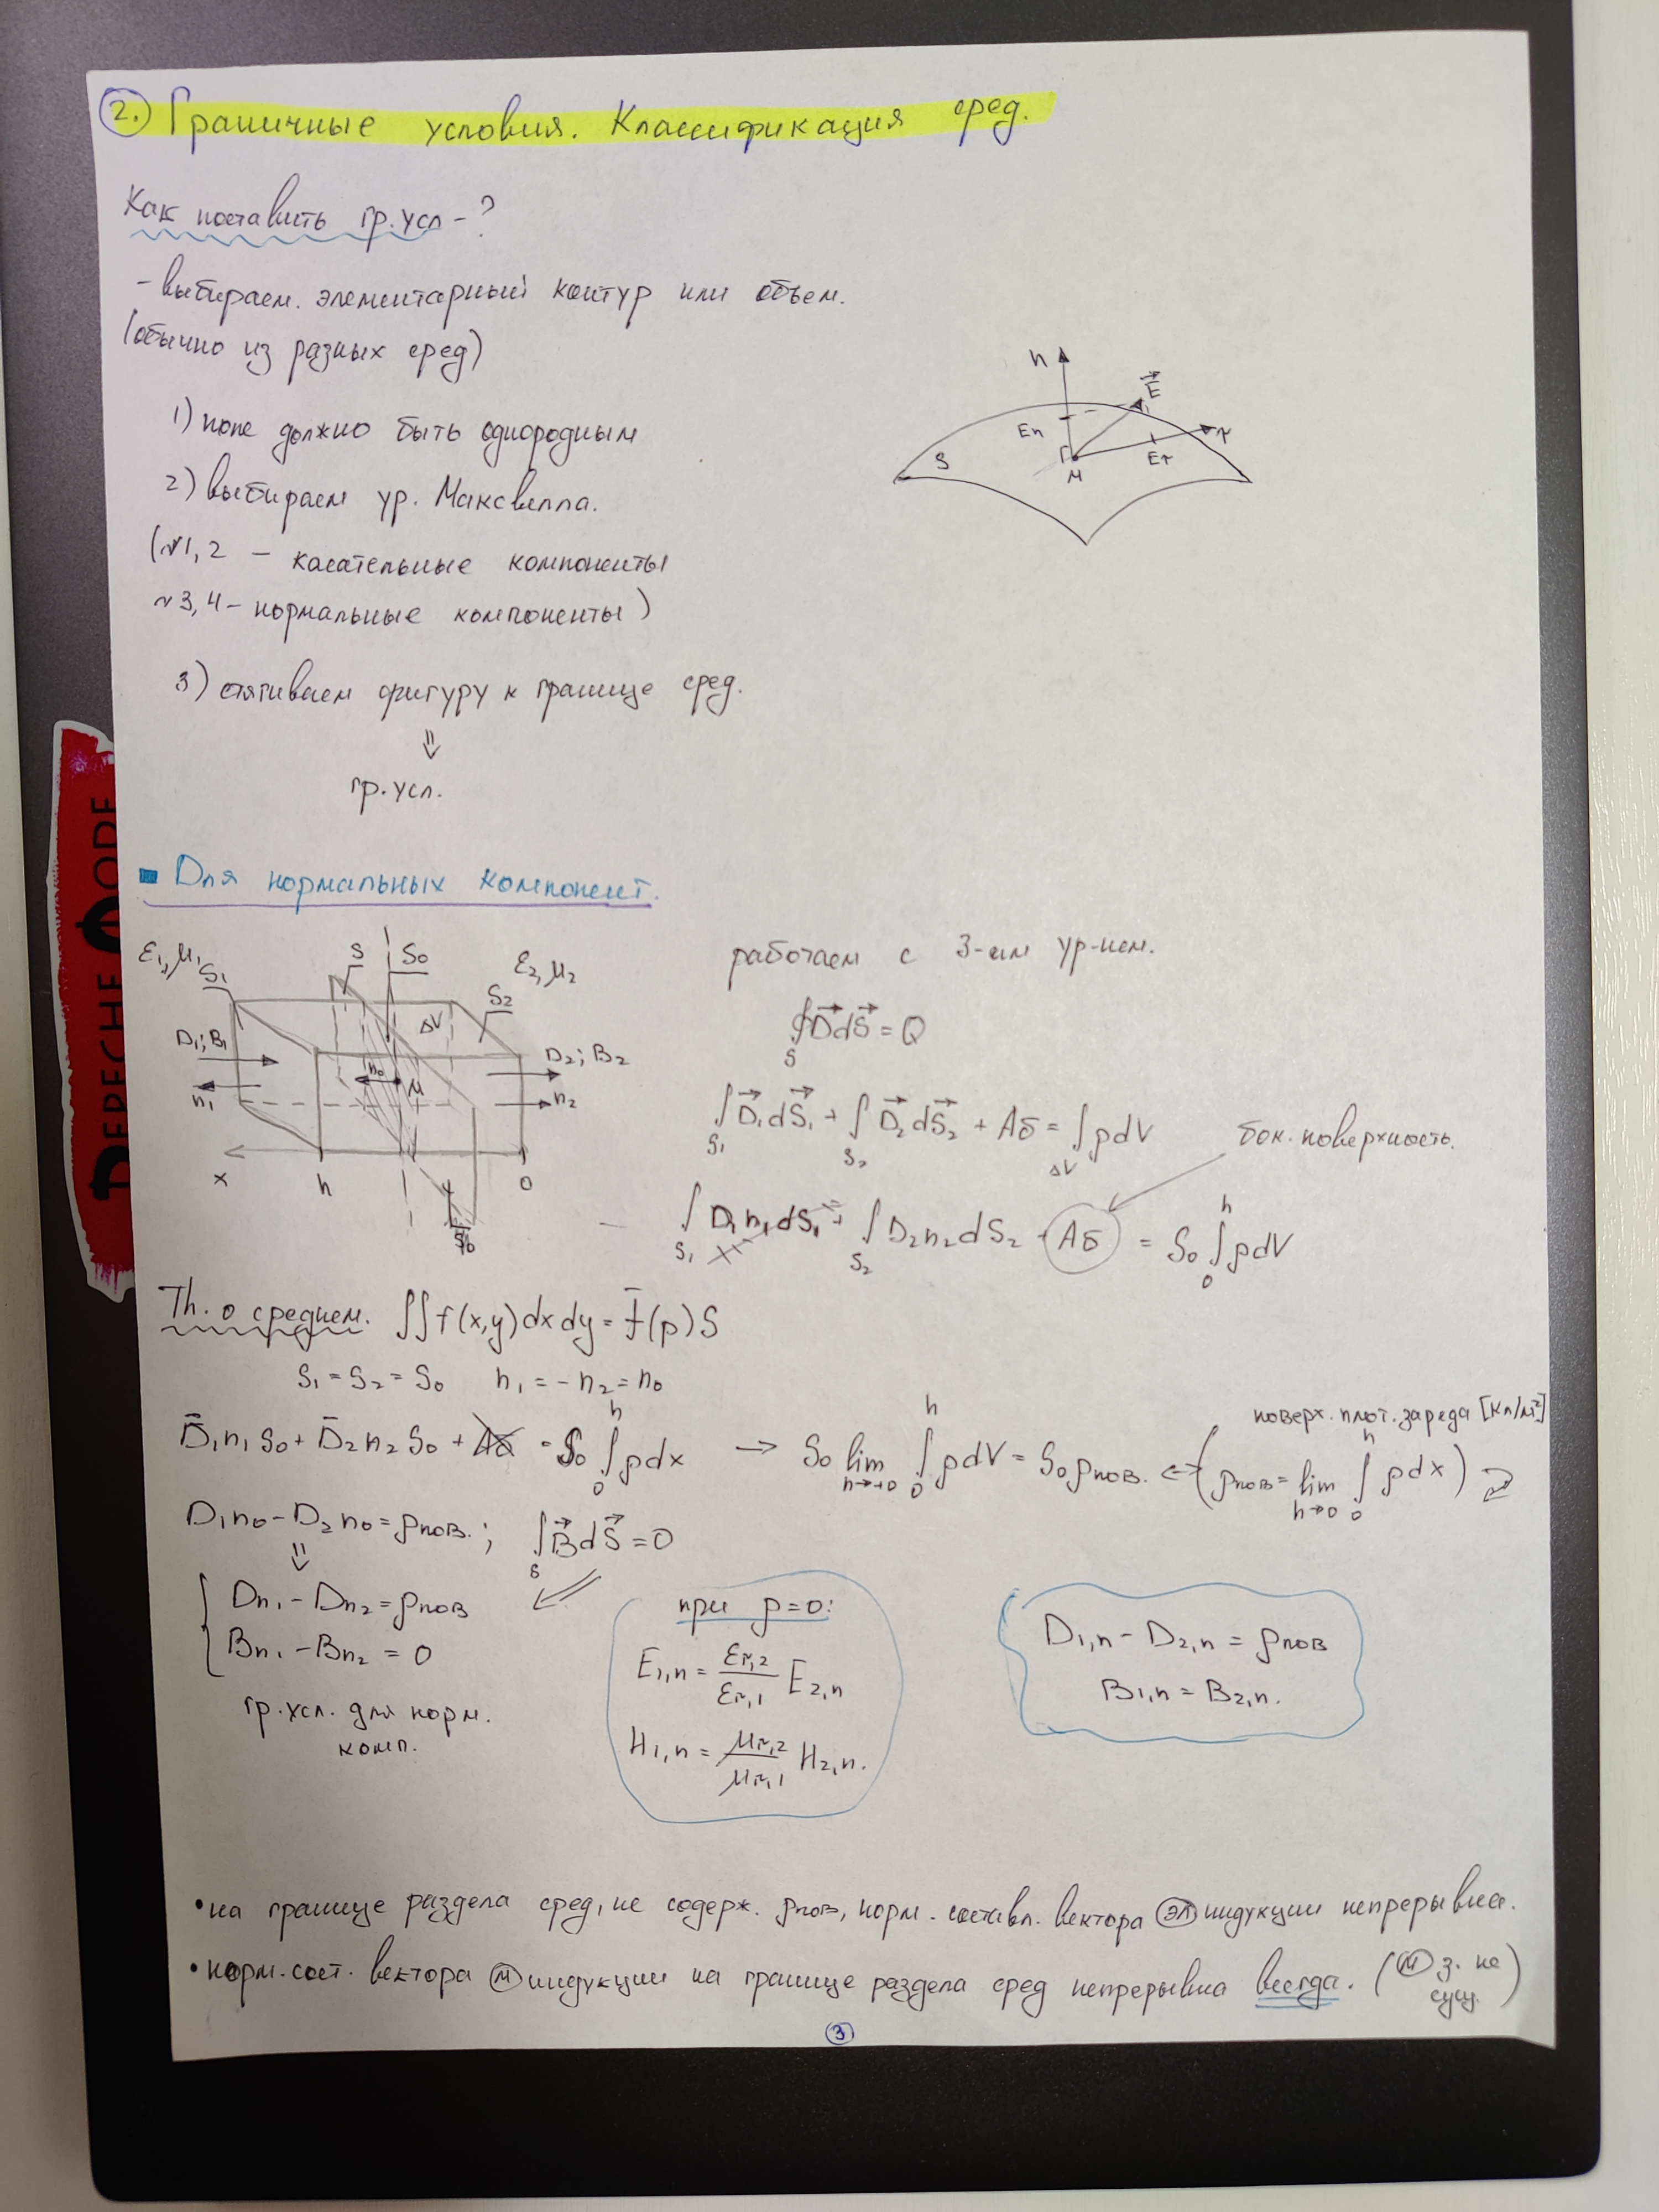 2. Граничные условия. Классификация сред.
Как поставить гр.усл - ?
- выбираем элементарный контур или объем.
(обычно из разных сред)
1) поле должно быть однородным
2) выбираем ур. Максвелла.
(~1,2 – касательные компоненты
~3,4 – нормальные компоненты)
3) стягиваем фигуру к границе сред.
⇓
гр.усл.
n
E⃗
En
τ
Eτ
S
M
DEPECHE MODE
Для нормальных компонент.
ε1, μ1
S1
S
S0
ε2, μ2
S2
ΔV
D1; B1
n0
M
D2; B2
n1
n2
x
h
0
S0
работаем с 3-им ур-ием.
∮_S D⃗dS⃗ = Q
∫_S1 D⃗1dS⃗1 + ∫_S2 D⃗2dS⃗2 + Aб = ∫_ΔV ρdV
бок. поверхность.
∫_S1 D1n1dS1 + ∫_S2 D2n2dS2 + Aб = S0 ∫_0^h ρdV
Th. о среднем. ∫∫f(x,y)dxdy = f̄(p)S
S1 = S2 = S0 n1 = -n2 = n0
D̄1n1S0 + D̄2n2S0 + Aб = S0 ∫_0^h ρdx → S0 lim_{h→0} ∫_0^h ρdV = S0ρпов. ↔ (ρпов = lim_{h→0} ∫_0^h ρdx)
поверх. плот. заряда [Кл/м²]
D1n0 - D2n0 = ρпов. ; ∫_S B⃗dS⃗ = 0
⇓
{ Dn1 - Dn2 = ρпов
Bn1 - Bn2 = 0
гр.усл. для норм.
комп.
при ρ=0:
E1,n = εr,2/εr,1 E2,n
H1,n = μr,2/μr,1 H2,n.
D1,n - D2,n = ρпов
B1,n = B2,n.
• на границе раздела сред, не содерж. ρпов, норм. составл. вектора эл индукции непрерывна.
• норм. сост. вектора м индукции на границе раздела сред непрерывна всегда. (м з. не сущ.)
3